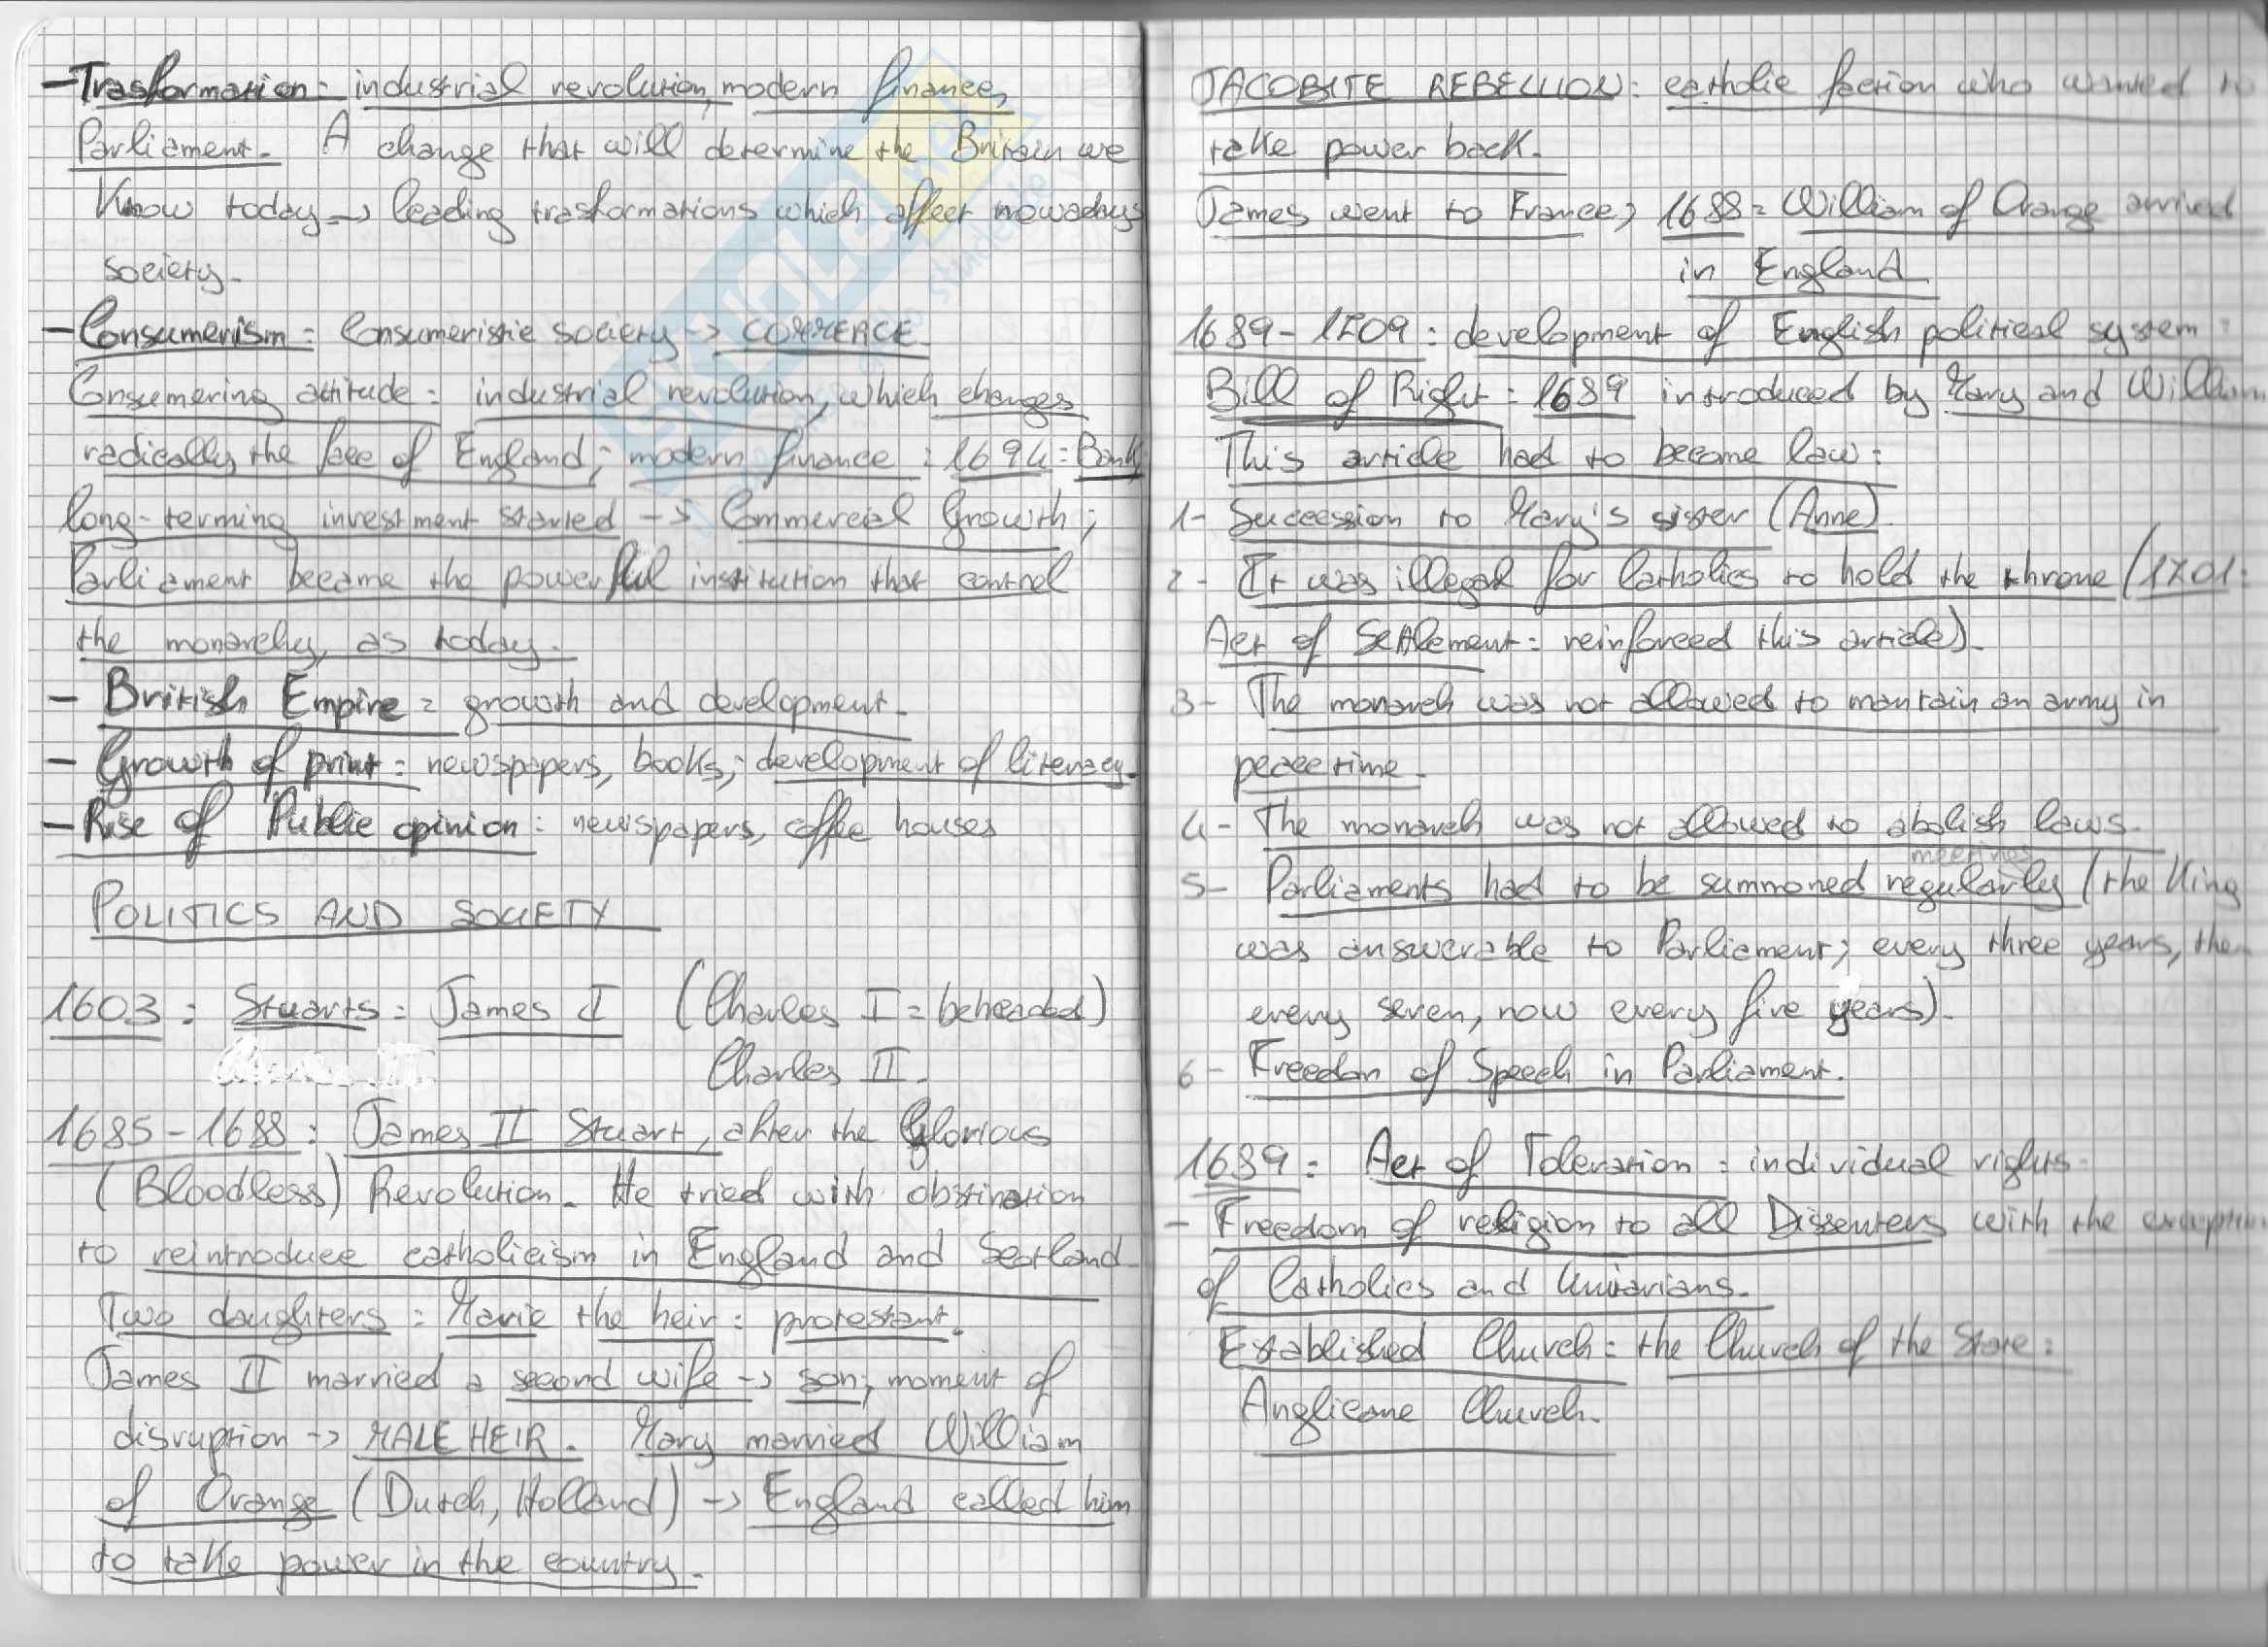 - Trasformation: industrial revolution, modern finance,
Parliament. A change that will determine the Britain we
Know today -> leading trasformations which affect nowadays
society.
- Consumerism: Consumeristic society -> COMMERCE
Consumering attitude: industrial revolution, which changes
radically the face of England; modern finance: 1694: Bank
long-terming investment started -> Commercial Growth;
Parliament became the powerful institution that control
the monarchy, as today.
- British Empire: growth and development.
- Growth of print: newspapers, books; development of literacy.
- Rise of Public opinion: newspapers, coffee houses
POLITICS AND SOCIETY
1603: Stuarts: James I (Charles I = beheaded)
Charles II.
1685-1688: James II Stuart, after the Glorious
(Bloodless) Revolution. He tried with obstination
to reintroduce catholicism in England and Scotland.
Two daughters: Marie the heir: protestant.
James II married a second wife -> son; moment of
disruption -> MALE HEIR. Mary married William
of Orange (Dutch, Holland) -> England called him
to take power in the country.
JACOBITE REBELLION: catholic faction who wanted to
take power back.
James went to France; 1688: William of Orange arrived
in England
1689-1709: development of English political system:
Bill of Right: 1689 introduced by Mary and William
This article had to become law:
1- Succession to Mary's sister (Anne).
2- It was illegal for Catholics to hold the throne (1701:
Act of Settlement: reinforced this article).
3- The monarch was not allowed to mantain an army in
peacetime.
4- The monarch was not allowed to abolish laws.
meetings
5- Parliaments had to be summoned regularly (the King
was answerable to Parliament; every three years, then
every seven, now every five years).
6- Freedom of Speech in Parliament.
1689: Act of Toleration: individual rights.
- Freedom of religion to all Dissenters with the exception
of Catholics and Unitarians.
Established Church: the Church of the State:
Anglicane Church.